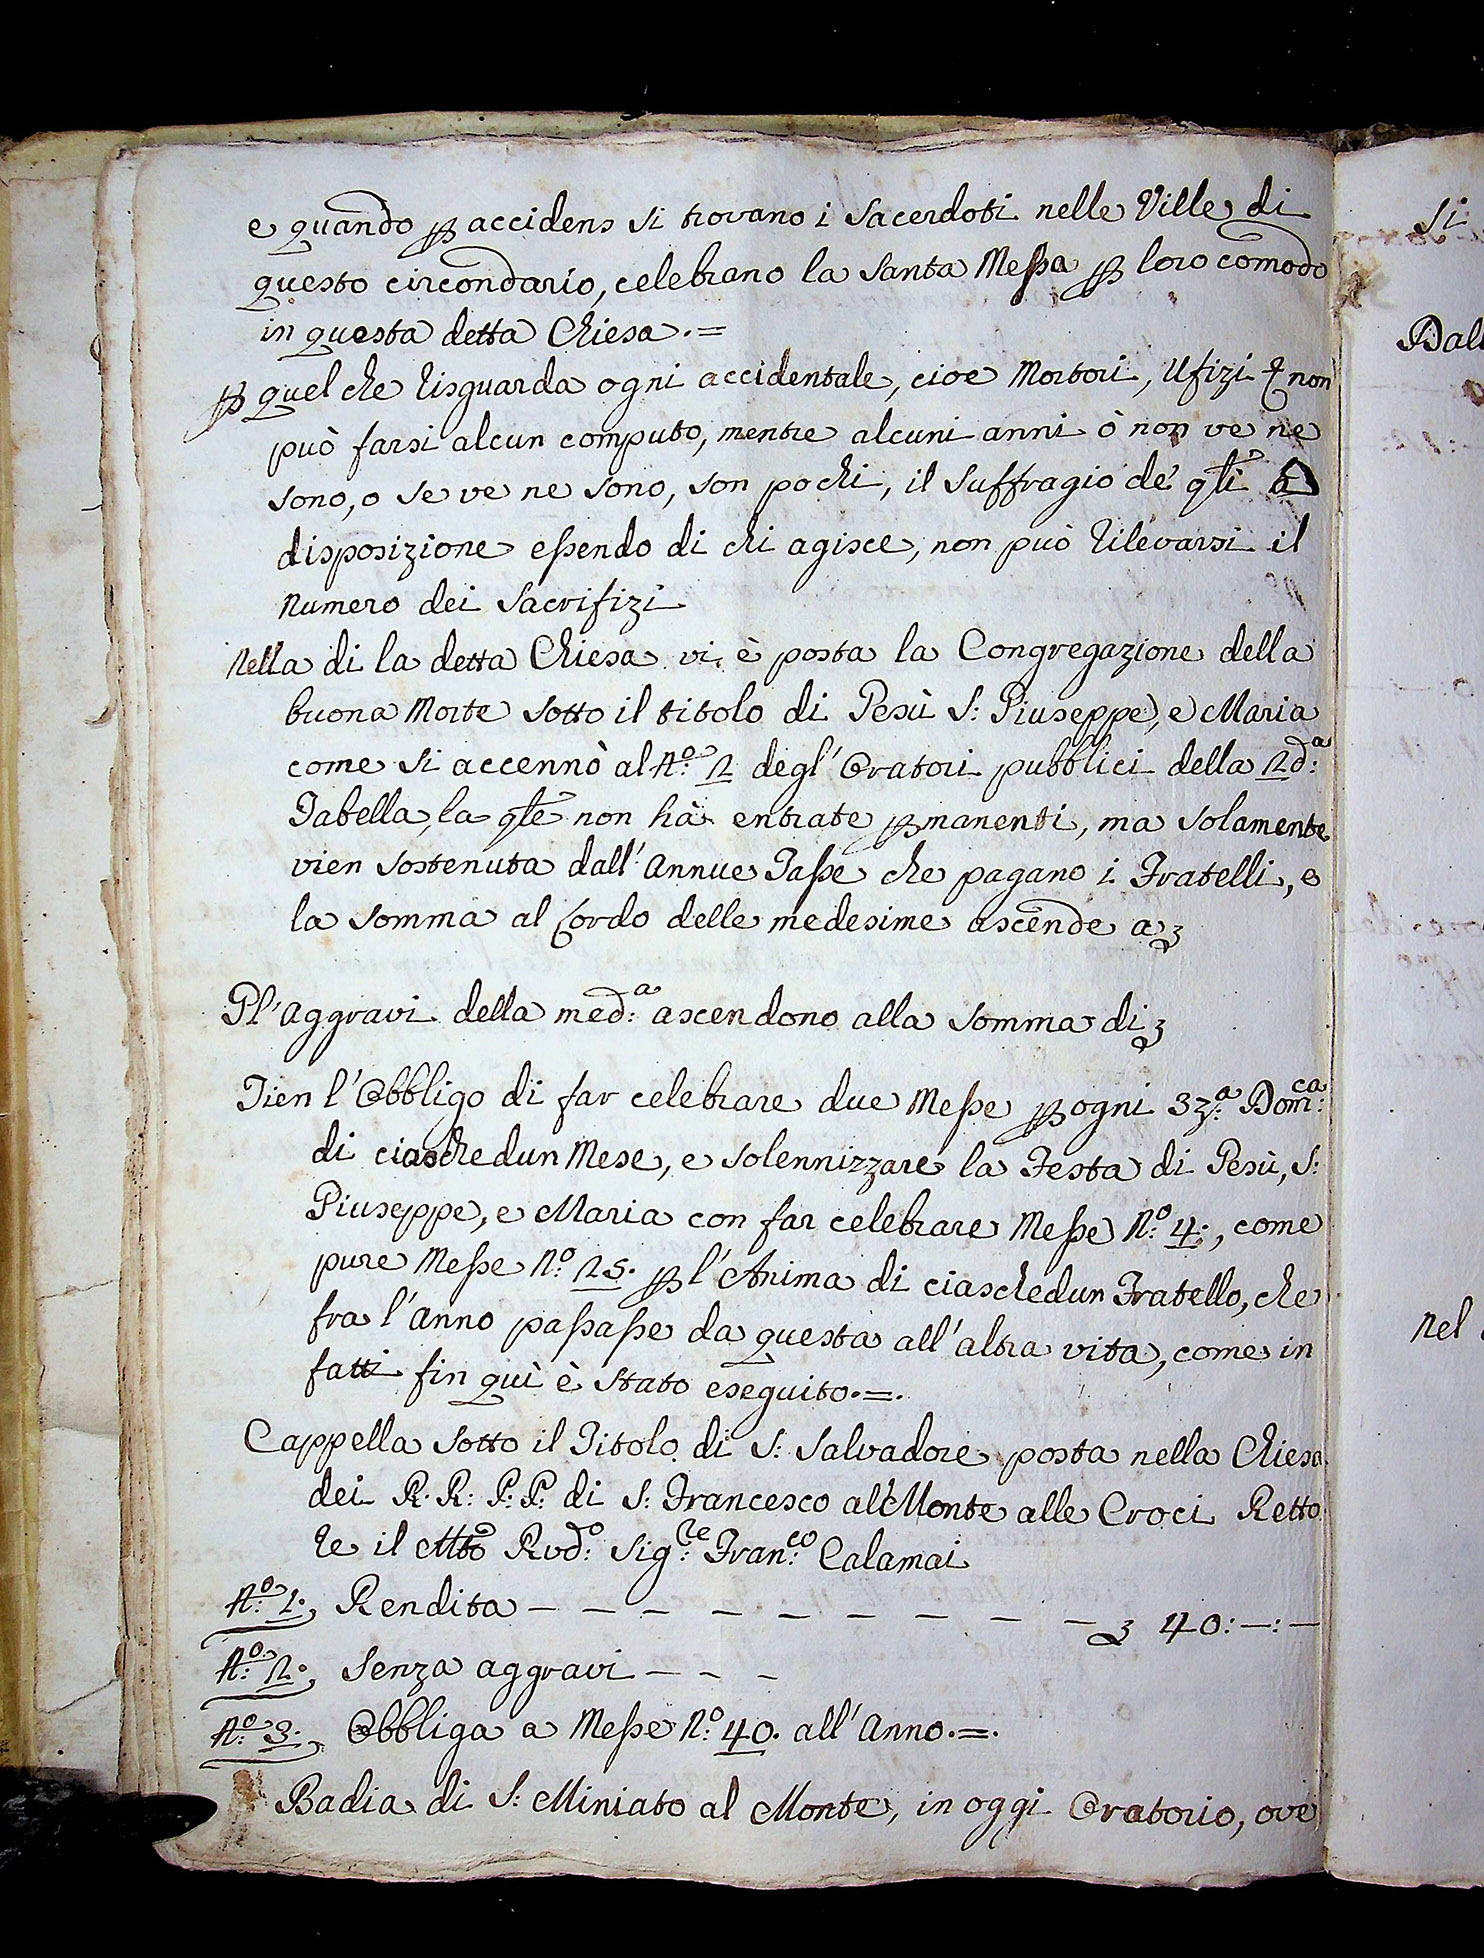 e quando p accidens si trovano i Sacerdoti nelle Ville di
questo circondario, celebrano la Santa Messa p loro comodo
in questa detta Chiesa.=
p quel che risguarda ogni accidentale, cioe Mortori, Ufizi & non
può farsi alcun computo, mentre alcuni anni ò non ve ne
sono, o se ve ne sono, son pochi, il Suffragio de' qli a
disposizione essendo di chi agisce, non può rilevarsi il
Numero dei Sacrifizi
Nella di la detta Chiesa vi è posta la Congregazione della
buona Morte sotto il titolo di Gesù S: Giuseppe, e Maria
come si accennò al N:o 2 degl' Oratori pubblici della 2d:a
Tabella, la qle non hà entrate pmanenti, ma solamente
vien sostenuta dall' Annue Tasse che pagano i Fratelli, e
la somma al Lordo delle medesime ascende a
Gl' Aggravi della med:a ascendono alla somma di
Tien l' Obbligo di far celebrare due Messe p ogni 3z:a Dom:ca
di ciaschedun Mese, e solennizzare la Festa di Gesù, S:
Giuseppe, e Maria con far celebrare Messe N:o 4:, come
pure Messe N:o 25. p l' Anima di ciaschedun Fratello, che
fra l' Anno passasse da questa all' altra vita, come in
fatti fin quì è stato eseguito.=.
Cappella sotto il Titolo di S: Salvadore posta nella Chiesa
dei R. R: P: P: di S: Francesco al Monte alle Croci Retto
re il Mto Rvd:o Sig:re Fran:co Calamai
N:o 1., Rendita — — — — — — — — — — 40:—:—
N:o 2., Senza aggravi — — —
N:o 3., Obbliga a Messe N:o 40. all' Anno.=.
Badia di S: Miniato al Monte, in oggi Oratorio, ove
Si
Dall
Nel